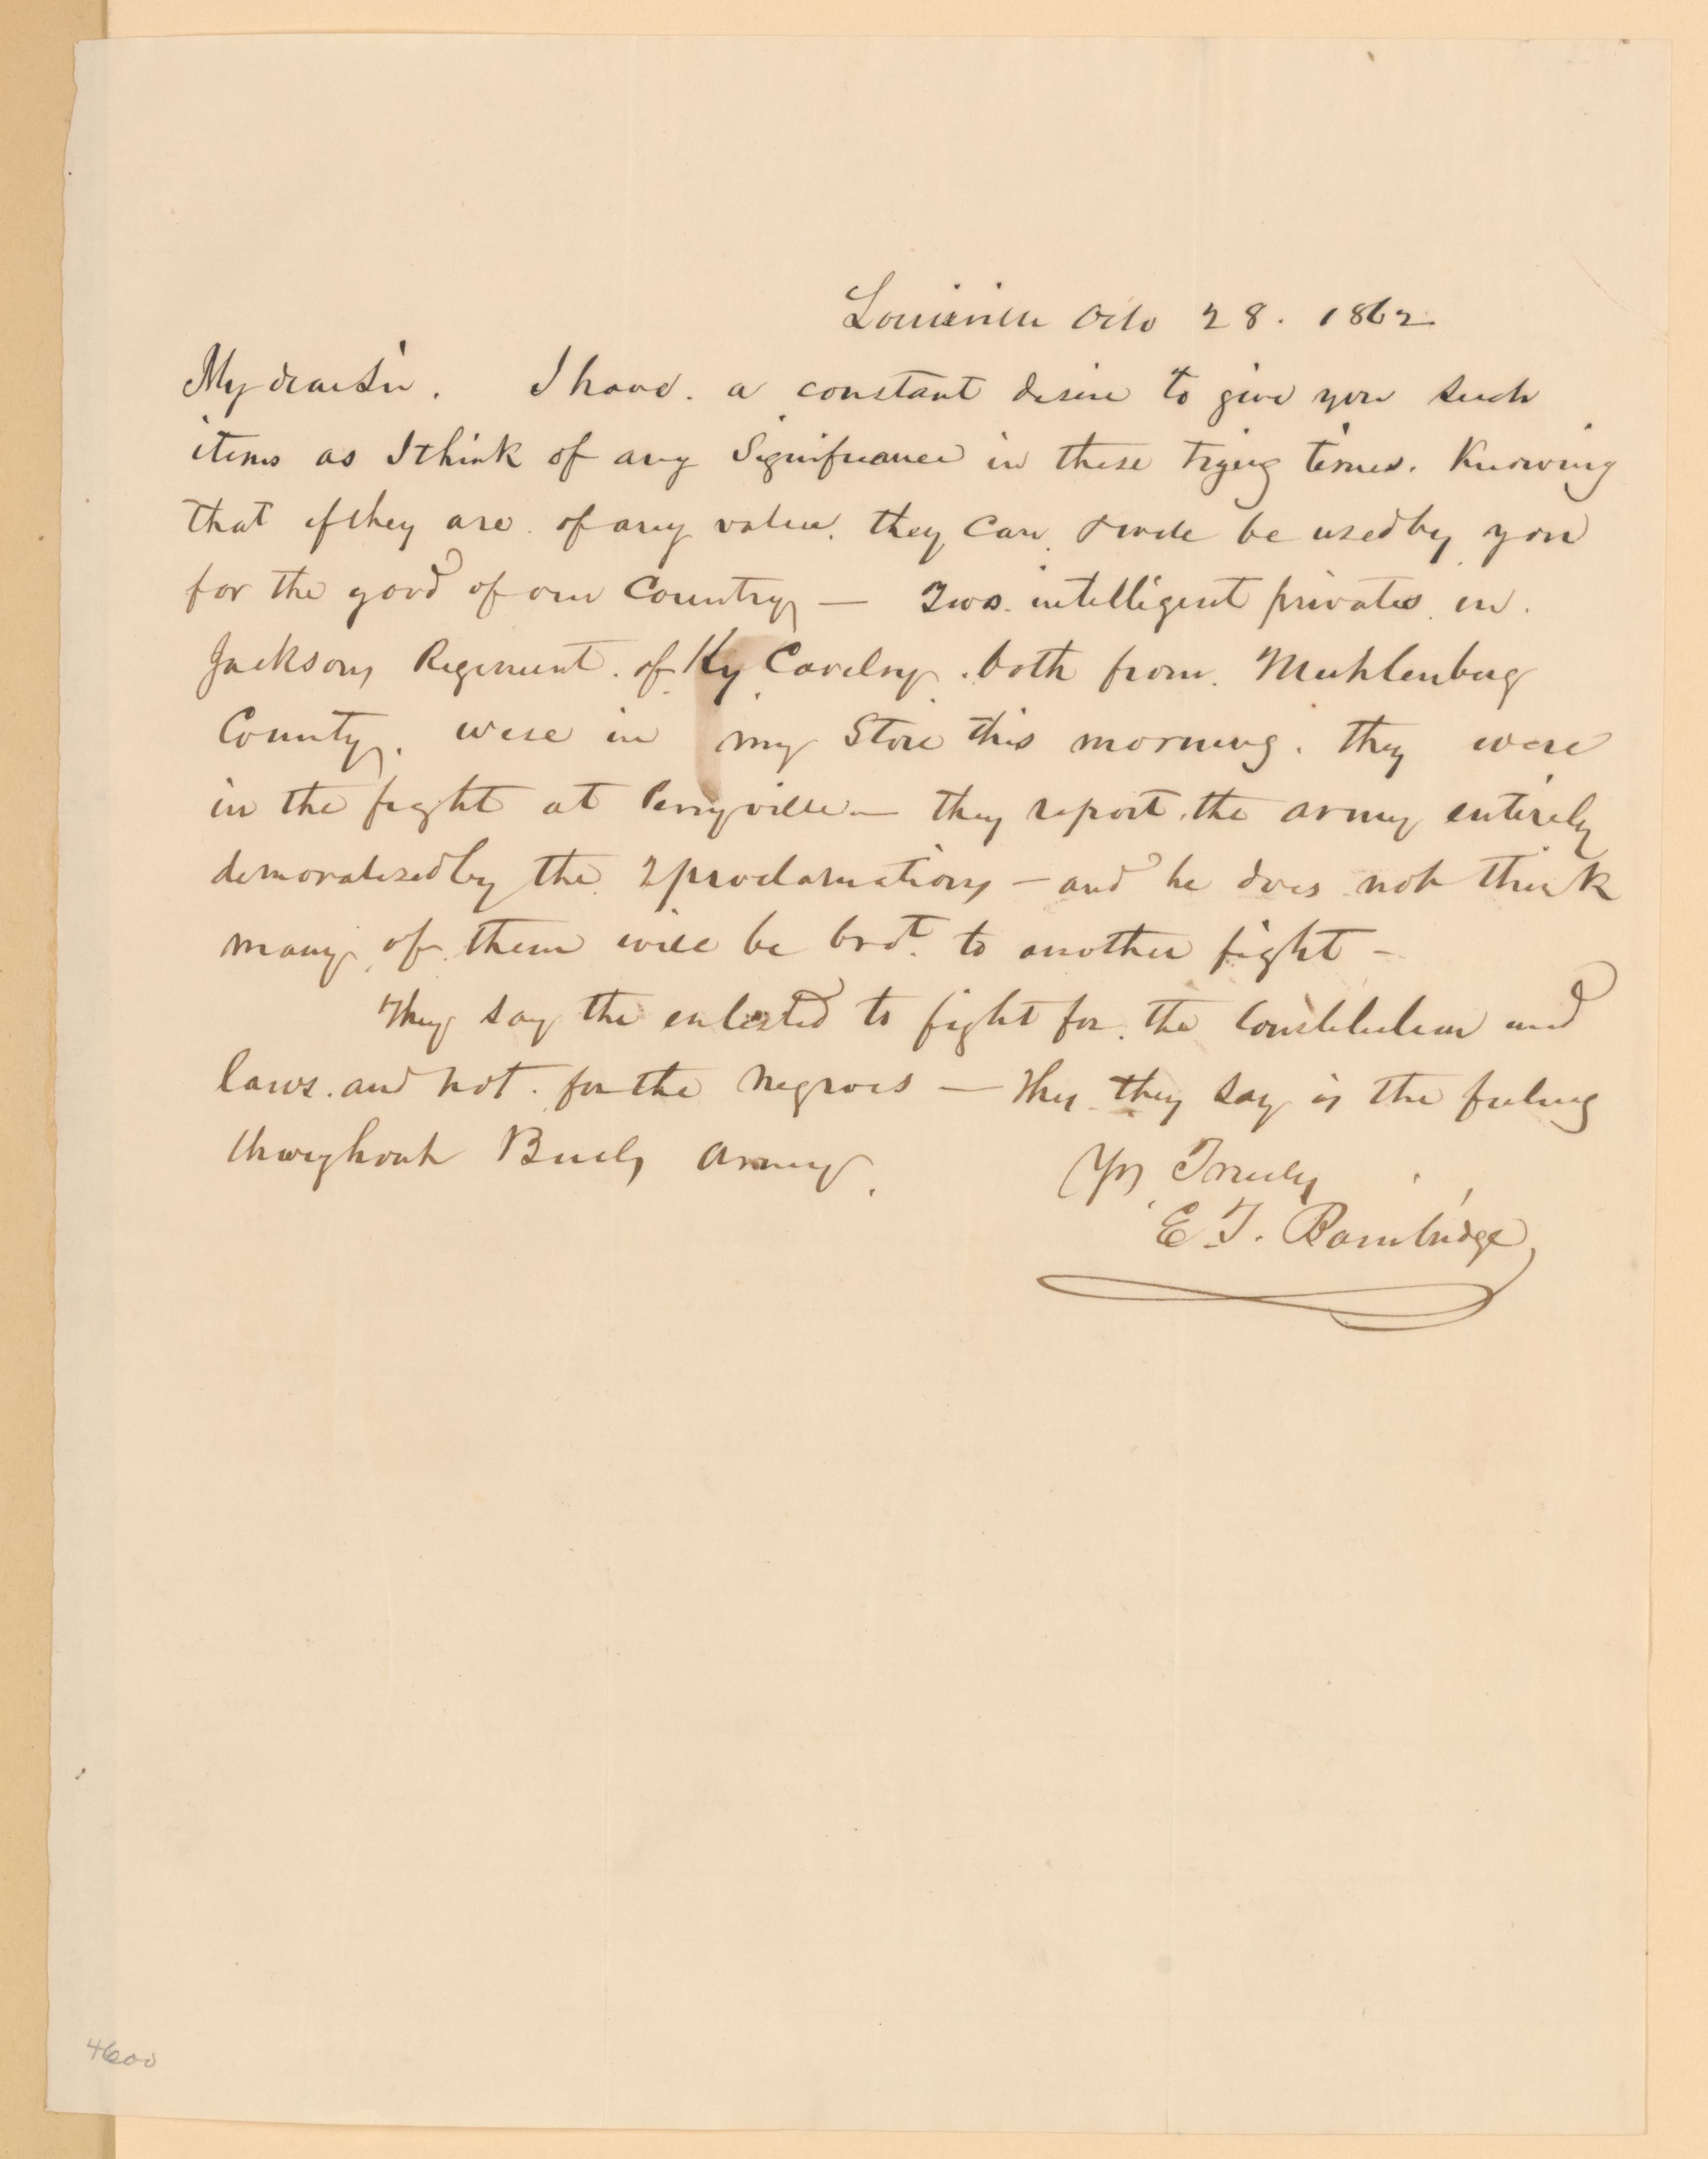 Louisville Octo 28. 1862
My dear Sir. I have. a constant desire to give you such
items as I think of any Significance in these trying times. Knowing
that if they are. of any value. they can & will be used by you
for the good of our Country — Two. intelligent privates in.
Jacksons Regiment. of Ky Cavelry. both from. Muhlenburg
County. were in my Store this morning. they were
in the fight at Perryville — they report. the army entirely
demoralized by the 2 proclamations — and he does not think
many of them will be brot. to another fight —
They say the enlisted to fight for. the Constitution and
laws. and not. for the Negroes — this they say is the feeling
throughout Buels army.
Yrs Truly
E. T. Bainbridge
4600